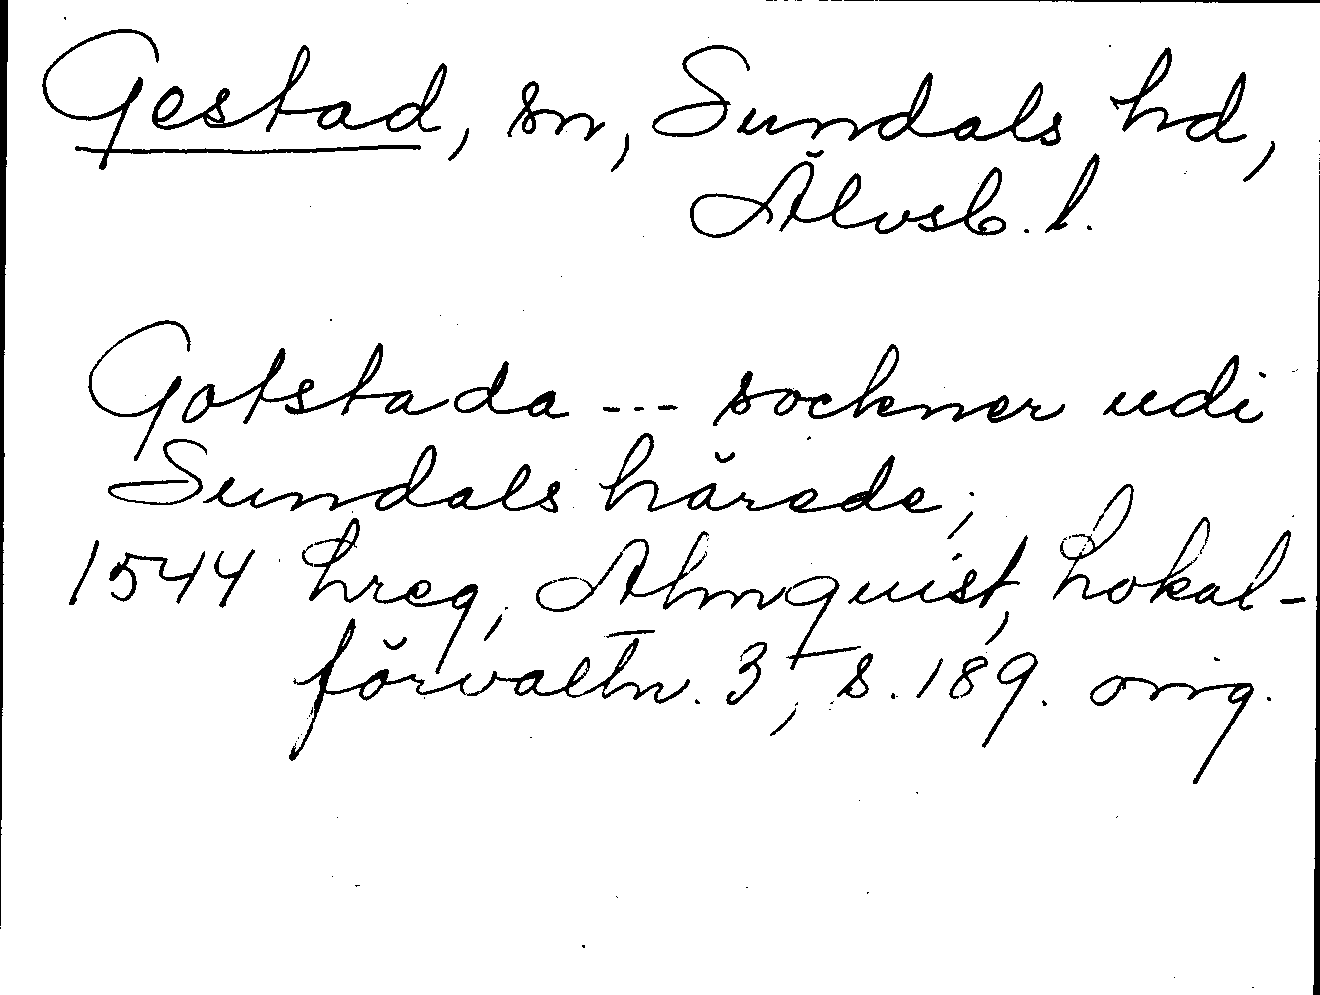 Gestad, sn, Sundals hd,
Älvsb. l.
Gotstada --- sockner udi
Sundals härede;
1544 hreg, Almquist, Lokal-
förvaltn. 3, s. 189. orig.